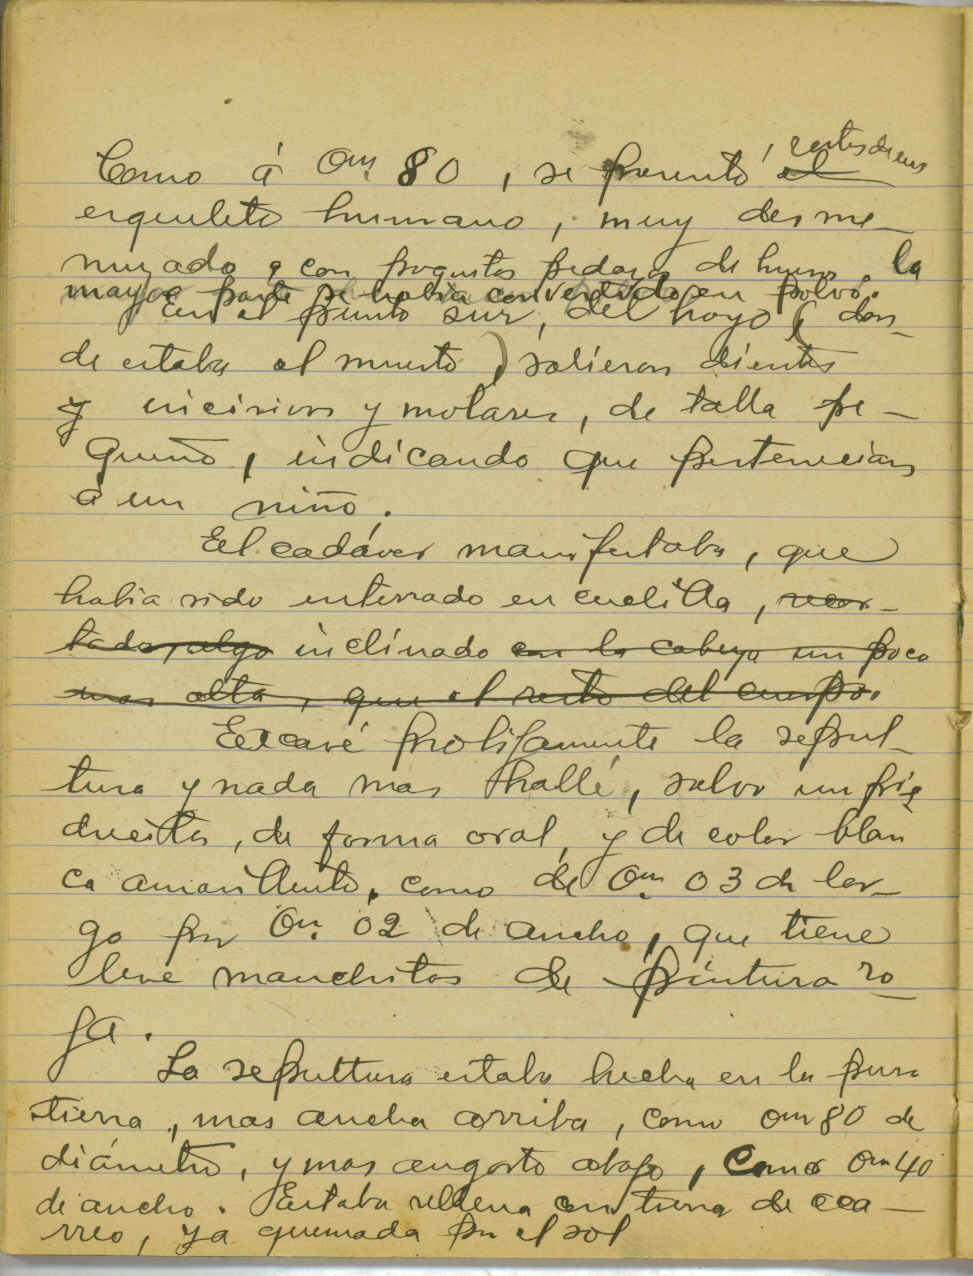 Como á 0m. 80, se presentó el restos de un
esqueleto humano, muy desme-
nuzado y con poquitos pedazos de hueso. la
mayor parte se habia convertido en polvo.
En el punto sur, del hoyo (don-
de estaba el muerto) salieron dientes
y incisivos y molares, de talla pe-
queño, indicando que pertenecian
á un niño.
El cadáver manifestaba, que
habia sido enterrado en cuclilla, recos-
tado, algo inclinado con la cabeza un poco
mas alta, que el resto del cuerpo.
Excavé prolijamente la sepul-
tura y nada mas hallé, salvo un pie
drecita, de forma oval, y de color blan
ca amarillento, como de 0m. 03 de lar-
go por 0m. 02 de ancho, que tiene
leve manchitas de pintura ro-
ja.
La sepulttura estaba hecha en la pura
tierra, mas ancha arriba, como 0m 80 de
diámetro, y mas angosto abajo, Como 0m 40
de ancho. Estaba rellena con tierra de aca-
rreo, ya quemada por el sol